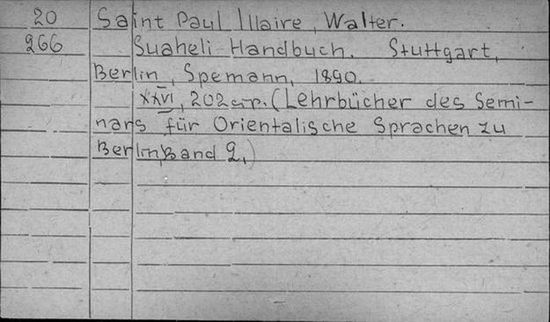 20 Saint Paul Illaire, Walter.
266 Suaheli Handbuch. Stuttgart,
Berlin, Spemann, 1890.
XXVI, 202 стр. (Lehrbücher des Semi-
nars für Orientalische Sprachen zu
Berlin, Band 2.)